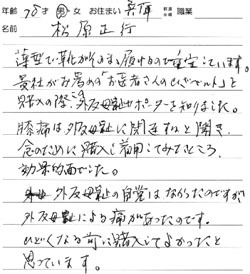 年齢 78才 男・女 お住まい 兵庫 都道府県 職業
名前 松原正行
薄型で靴がそのまま履けるので重宝しています。
貴社がお薦めの「お医者さんの　　ベルト」と
購入の際に外反母趾サポーターを知りました。
膝痛は外反母趾に関連すると聞き、
念のために購入し着用してみたところ、
効果的面でした。
外反母趾の自覚はなかったのですが
外反母趾による痛みがあったのです。
ひどくなる前に購入してよかったと
思っています。